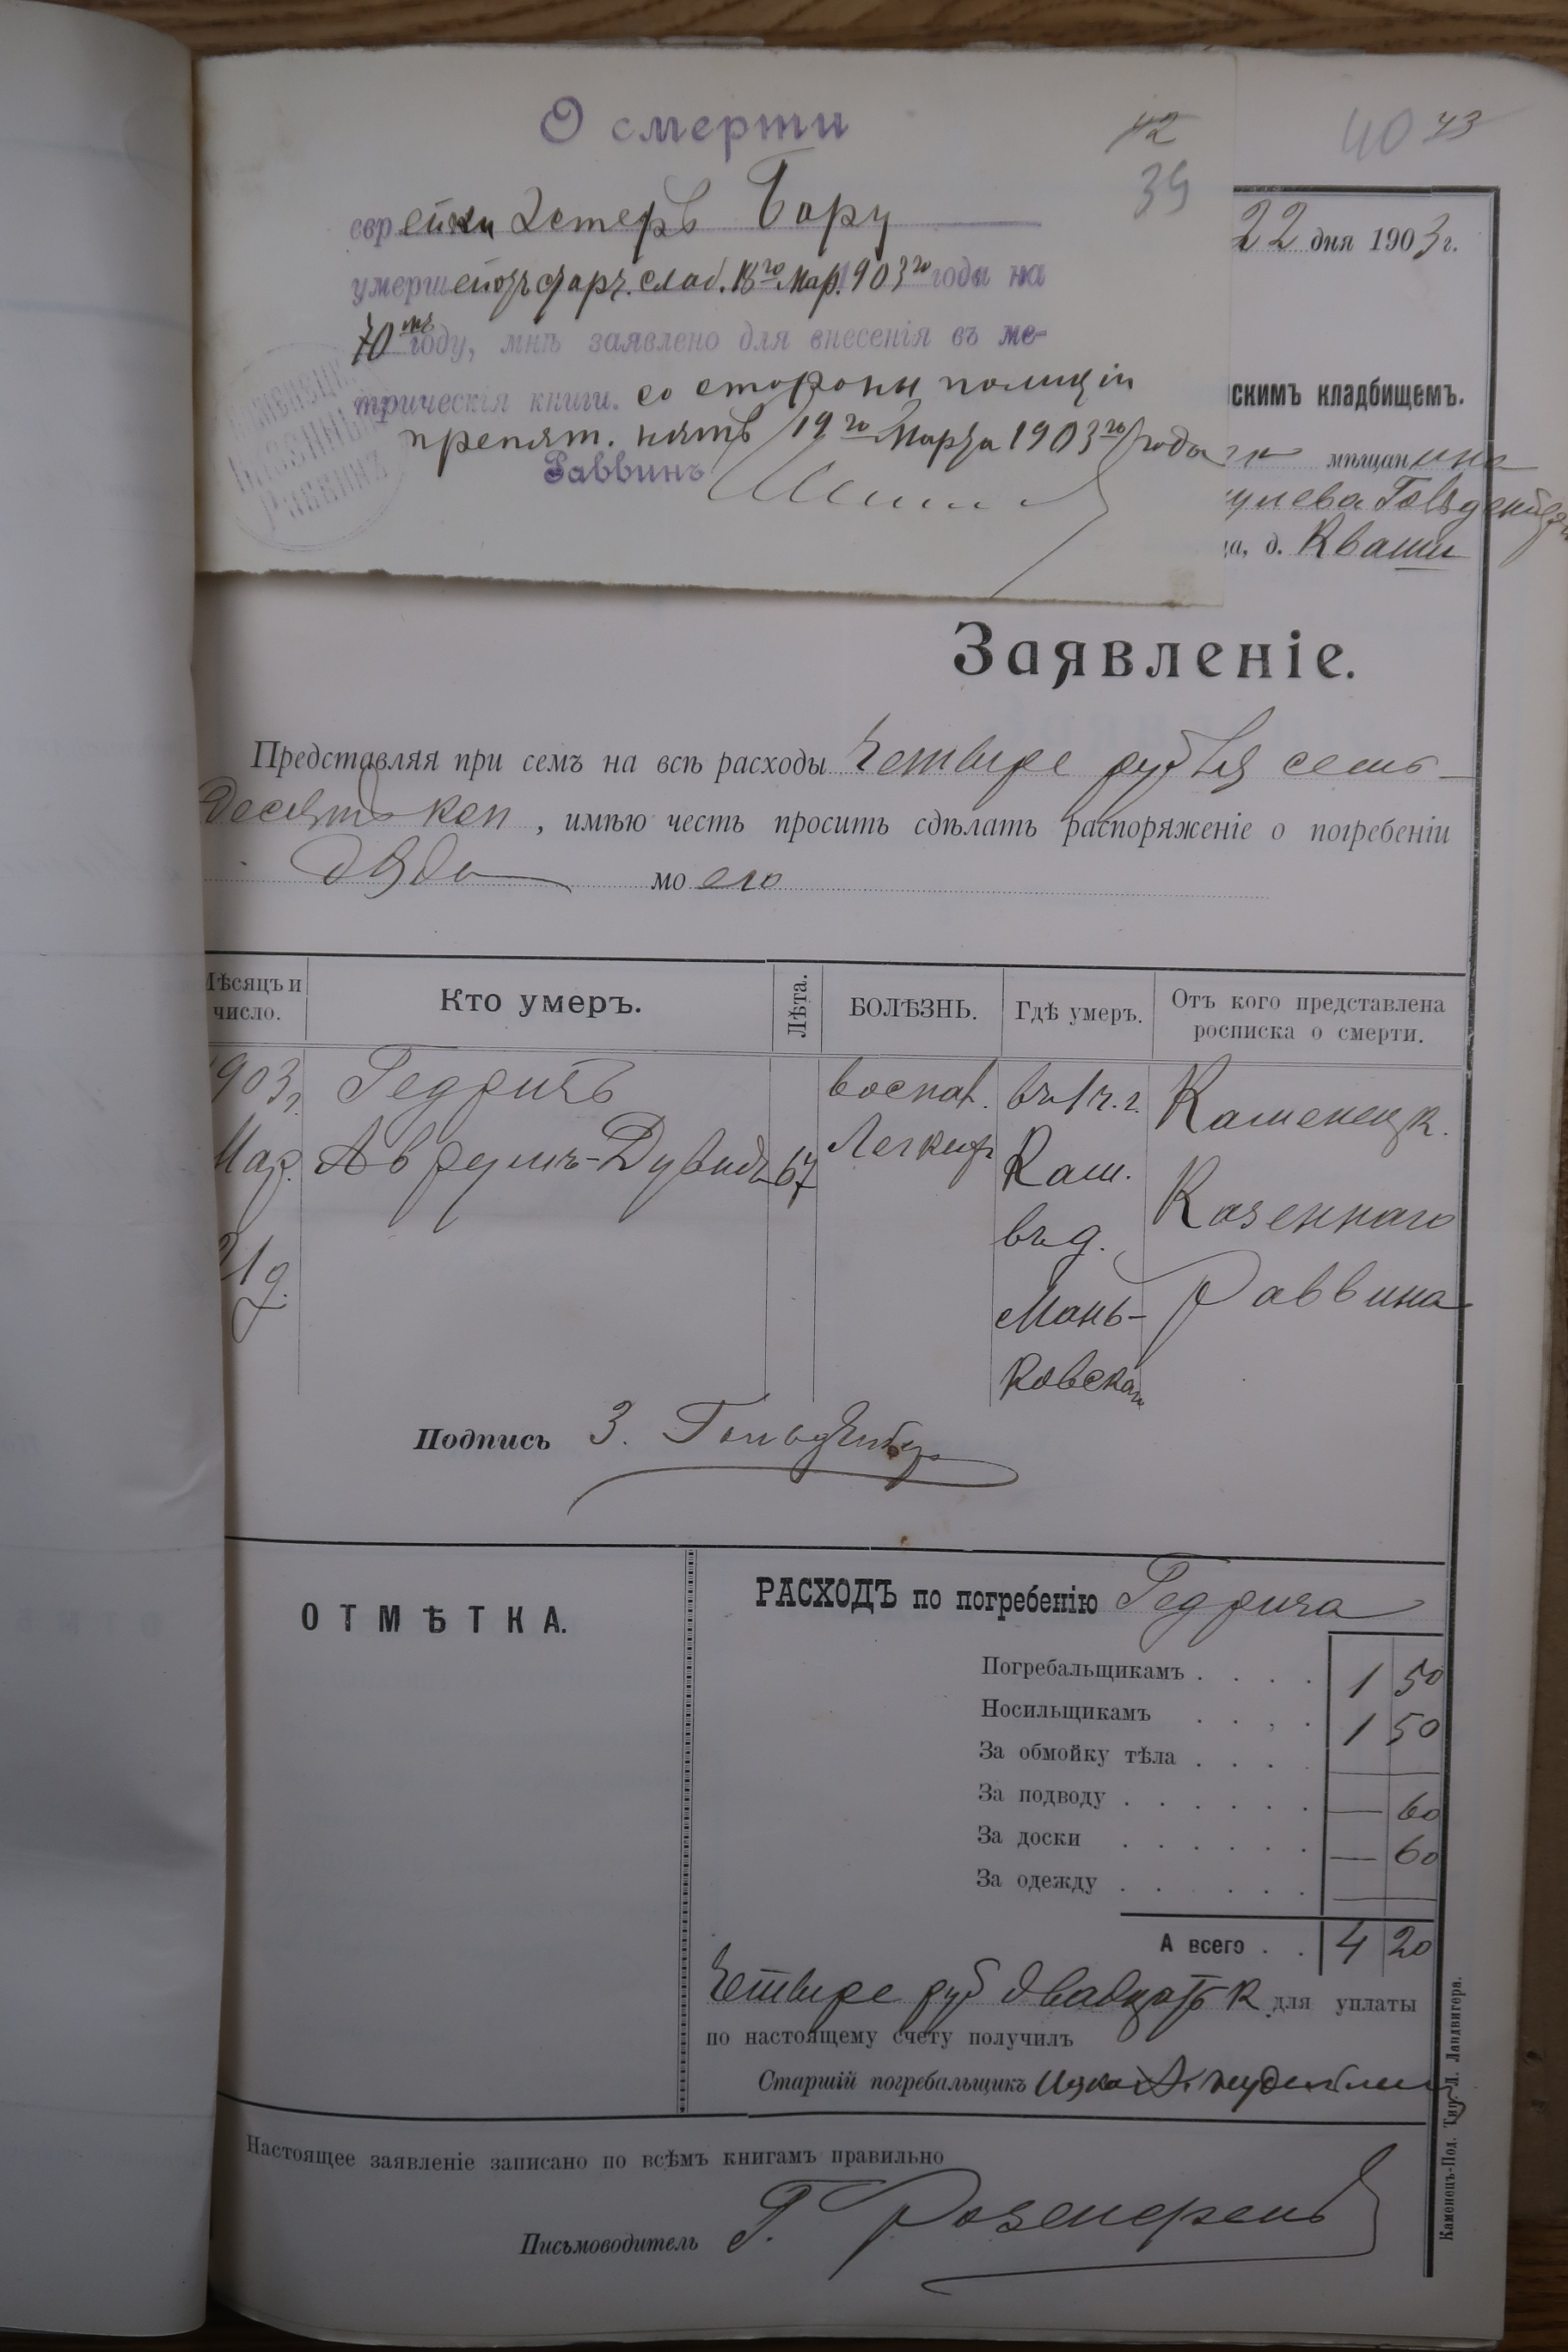 О смерти
42
39
40 43
еврейки Эстеръ Бару
умершей отъ старч. слаб. 18го Мар. 1903го года на
70мъ году, мнѣ заявлено для внесенія въ ме-
трическія книги. со стороны полиціи
препят. нѣтъ 19го Марта 1903го года
Раввинъ
22 дня 1903 г.
скимъ кладбищемъ.
мѣщанина
д. Кваши
Заявленіе.
Представляя при семъ на всѣ расходы Четыре рубля семь-
десятъ коп, имѣю честь просить сдѣлать распоряженіе о погребеніи
дяди моего
Мѣсяцъ и число.
Кто умеръ.
Лѣта.
БОЛѢЗНЬ.
Гдѣ умеръ.
Отъ кого представлена росписка о смерти.
1903 г. Мар. 21 д.
Гедричъ
Аврумъ-Дувидъ
67
воспал.
Легкихъ
въ 1 ч. г.
Кам.
въ д.
Мань-
ковской
Каменецк.
Казеннаго
Раввина
Подпись З.
ОТМѢТКА.
РАСХОДЪ по погребенію Гедрича
Погребальщикамъ . . . . 1 50
Носильщикамъ . . , . 1 50
За обмойку тѣла . . . . —
За подводу . . . . . . — 60
За доски . . . . . . — 60
За одежду . . . . . . —
А всего . . 4 20
Четыре руб двадцать к для уплаты
по настоящему счету получилъ
Старшій погребальщикъ Ицко
Настоящее заявленіе записано по всѣмъ книгамъ правильно
Письмоводитель Г.
Каменецъ-Под. Тип. Л. Ландвигера.